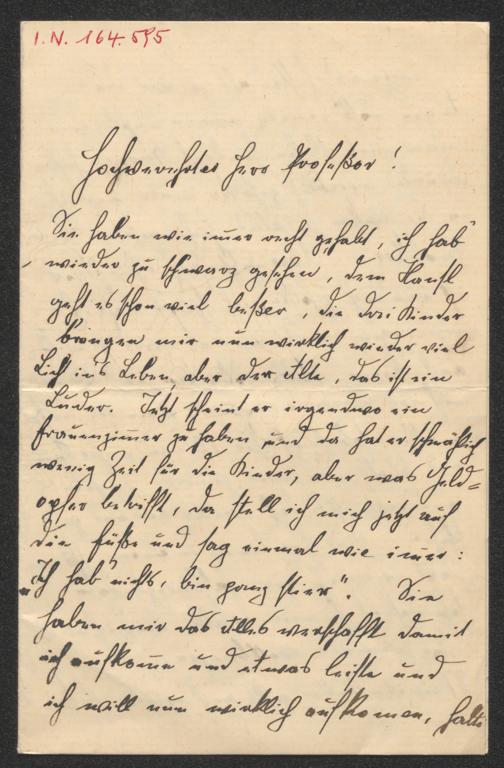 I.N. 164.595
Hochverehrter Herr Profeßor!
Sie haben wie im̅er recht gehabt, ich hab'
wieder zu schwarz gesehen, dem Hansl
geht es schon viel beßer, die drei Kinder
bringen mir nun wirklich wieder viel
Licht ins Leben, aber der Alte, das ist ein
Luder. Jetzt scheint er irgendwo ein
Frauenzim̅er zu haben und da hat er schmählich
wenig Zeit für die Kinder, aber was Geld=
opfer betrifft, da stell ich mich jetzt auf
die Füße und sag einmal wie im̅er:
"Ich hab' nichts, bin ganz stier". Sie
haben mir das Alles verschafft damit
ich aufkom̅e und etwas leiste und
ich will nun wirklich aufkom̅en, halte